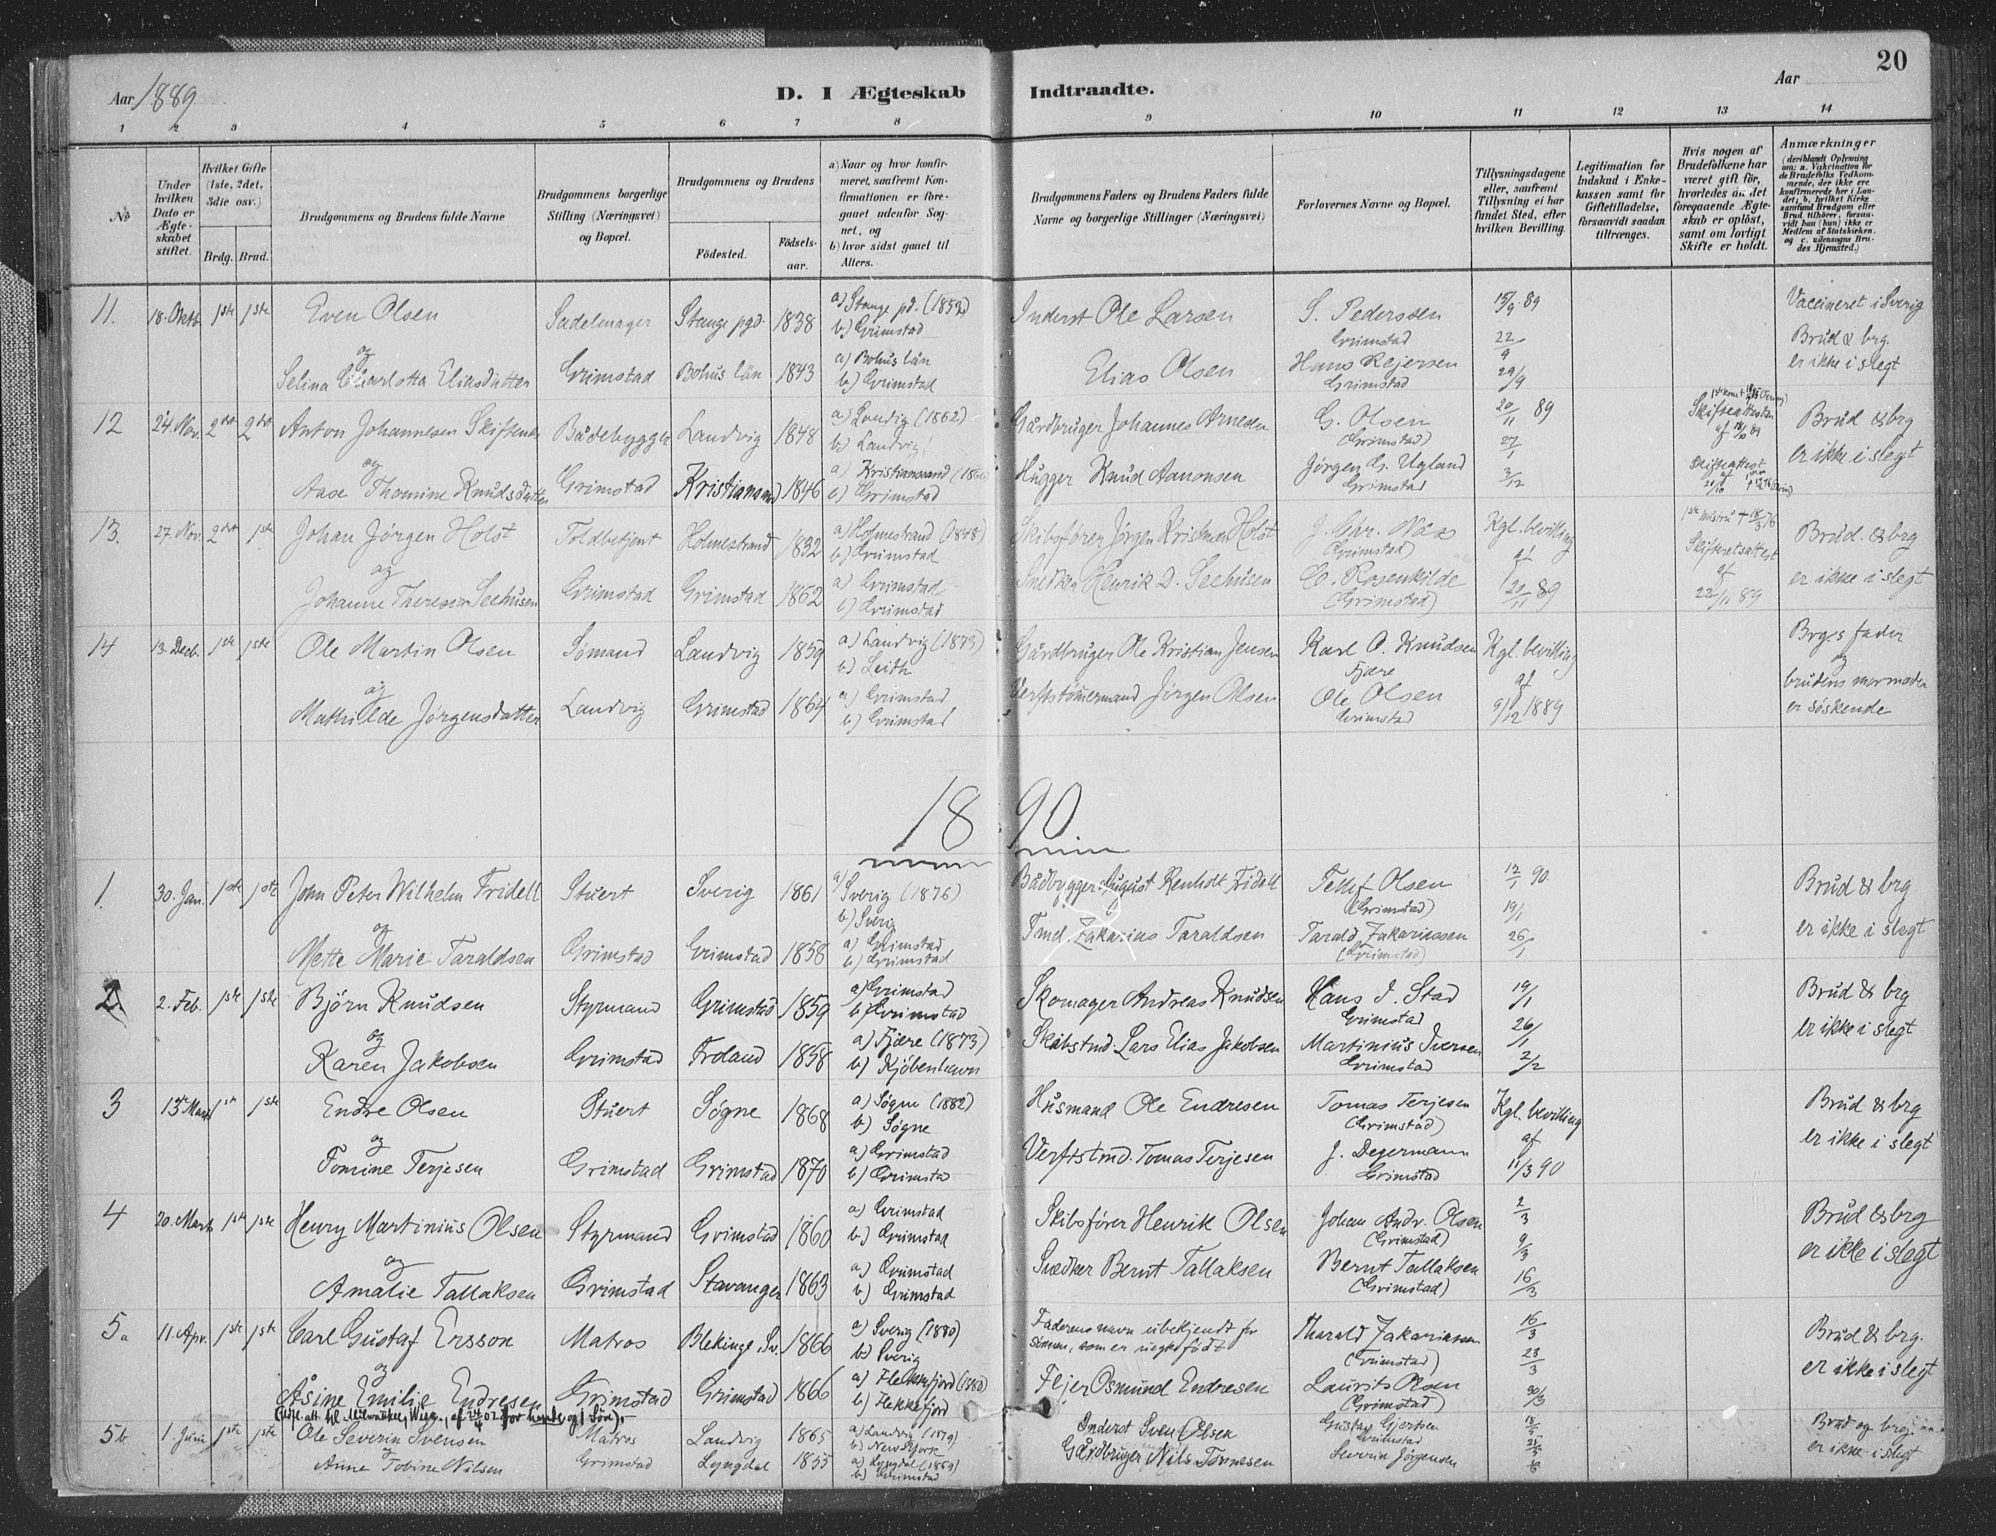 Aar 1889
D. I Ægteskab Indtraadte.
Aar
20
1 2 3 4 5 6 7 8 9 10 11 12 13 14
No
Under hvilken Dato er Ægteskabet stiftet.
Hvilket Gifte (1ste, 2det, 3die osv.)
Brdg. Brud.
Brudgommens og Brudens fulde Navne
Brudgommens borgerlige Stilling (Næringsvei) og Bopæl.
Brudgommens og Brudens
Födested.
Födselsaar.
a) Naar og hvor konfirmeret, saafremt Konfirmationen er foregaaet udenfor Sognet, og
b) hvor sidst gaaet til Alters.
Brudgommens Faders og Brudens Faders fulde Navne og borgerlige Stillinger (Næringsvei)
Forlovernes Navne og Bopæl.
Tillysningsdagene eller, saafremt Tillysning ei har fundet Sted, efter hvilken Bevilling.
Legitimation for Indskud i Enkekassen samt for Giftetilladelse, forsaavidt saadan tiltrænges.
Hvis nogen af Brudefolkene har været gift før, hvorledes da det foregaaende Ægteskab er oplöst, samt om lovligt Skifte er holdt.
Anmærkninger
(deriblandt Oplysning om: a. Vaccination for de Brudefolks Vedkommende, der ikke ere konfirmerede her i Landet; b. hvilket Kirkesamfund Brudgom eller Brud tilhörer, forsaavidt han (hun) ikke er Medlem af Statskirken. og c. udensogns Brudes Hjemsted.)
11. 18. Oktb. 1ste 1ste Even Olsen Sadelmager Stange pgd. 1838 a) Stange pd. (1853) b) Grimstad Inderst Ole Larsen S. Pederssen Grimstad 15/9 89 22/9 Vaccineret i Sverig
og Selina Charlotta Eliasdatter Grimstad Bohus län 1843 a) Bohus län b) Grimstad Elias Olsen Hans Rejersen Grimstad 29/9 Brud & brg. er ikke i slegt
12 24. Nov. 2det 2det Anton Johannesen Skiftenes Bådebygger Landvig 1848 a) Landvig (1862) b) Landvig Gårdbruger Johannes Arnesen G. Olsen (Grimstad) 20/11 89 Skifteattest af 18/10 89 Brud & brg
og Aase Thomine Knudsdatter Grimstad Kristiansand 1846 a) Kristianssand (1860) b) Grimstad Hugger Knud Aanonsen Jørgen G. Ugland Grimstad 3/12 Skifteattest af er ikke i slegt
13. 27. Nov. 2det 1ste Johan Jørgen Holst Toldbetjent Holmestrand 1832 a) Holmestrand (1848) b) Grimstad Skibsfören Jörgen Holst J. Chr. Næs (Grimstad) Kgl. bevilling af Skifteretsattest af Brud. & brg
og Johanne Theresia Seehusen Grimstad Grimstad 1862 a) Grimstad b) Grimstad Snedker Henrik D. Seehusen C. Rosenkilde (Grimstad) 20/11 89 22/11 89 er ikke i slegt
14 13. Decb. 1ste 1ste Ole Martin Olsen Sømand Landvig 1859 a) Landvig (1873) b) Leith Gårdbruger Ole Kristian Jensen Karl O. Knudsen Fjære Kgl. bevilling af Brgs fader og
og Mathilde Jørgensdatter Landvig Grimstad 1864 a) Grimstad b) Grimstad Verftstömermand Jörgen Olsen Ole Olsen Grimstad 9/12 1889 brudens mormoder er söskende
1890
1. 30. Jan. 1ste 1ste John Peter Wilhelm Fridell Stuert Sverig 1861 a) Sverig (1876) b) Sverig Bådbygger August Renholt Fridell Tellef Olsen (Grimstad) 12/1 90. 19/1 Brud & brg
og Mette Marie Taraldsen Grimstad Grimstad 1858 a) Grimstad b) Grimstad Tmd. Zakarias Taraldsen Tarald Zakariassen (Grimstad) 26/1 er ikke i slegt
2. 2. Feb. 1ste 1ste Bjørn Knudsen Styrmand Grimstad 1859 a) Grimstad b) Grimstad Skomager Andreas Knudsen Hans J. Stad Grimstad 19/1 26/1 Brud & brg
og Karen Jakobsen Grimstad Froland 1858 a) Fjære (1873) b) Kjöbenhavn Skibstmd Lars Elias Jakobsen Martinius Iversen Grimstad 2/2 er ikke i slegt
3 13. Marts 1ste 1ste Endre Olsen Stuert Søgne 1868 a) Søgne (1882) b) Søgne Husmand Ole Endresen Tomas Terjesen (Grimstad) Kgl. bevilling af Brud & brg
og Tomine Terjesen Grimstad Grimstad 1870 a) Grimstad b) Grimstad Verftstmd. Tomas Terjesen J. Degermann Grimstad 11/3 90 er ikke i slegt
4 20. Marts 1ste 1ste Henry Martinius Olsen Styrmand Grimstad 1860 a) Grimstad b) Grimstad Skibsförer Henrik Olsen Johan Andr. Olsen (Grimstad) 2/3 9/3 Brud & brg
og Amalie Tallaksen Grimstad Stavanger 1863 a) Grimstad b) Grimstad Snedker Bernt Tallaksen Bernt Tallaksen (Grimstad) 16/3 er ikke i slegt
5a 11. Apr. 1ste 1ste Carl Gustaf Ersson Matros Blekinge, Sv. 1866 a) Sverig (1880) b) Sverig Faderens navn ubekjendt for sönnen, som er uegte födt Tharald Zakariassen (Grimstad) 16/3 23/3 Brud & brg.
og Åsine Emilie Endresen Grimstad Grimstad 1866 a) Flekkefjord b) Flekkefjord Flejer Osmund Endresen Laurits Olsen (Grimstad) 30/3 er ikke i slegt
5b 1. Juni 1ste 1ste Ole Severin Svensen Matros Landvig 1865 a) Landvig (1879) b) New York Inderst Sven Olsen Gustav Gjertsen Grimstad 18/5 Brud og brg.
og Anne Tobine Nilsen Grimstad Lyngdal 1855 a) Lyngdal (1869) b) Grimstad Gårdbruger Nils Tönnesen Severin Jörgensen er ikke i slegt